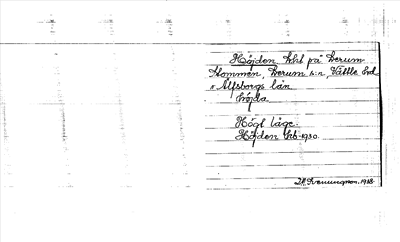 Höjden lht på Lerum
Stommen, Lerum s:n, Vättle hd
Älfsborgs län.
höjda.
Högt läge.
Höjden hb-1930.
Svenningson. 1938